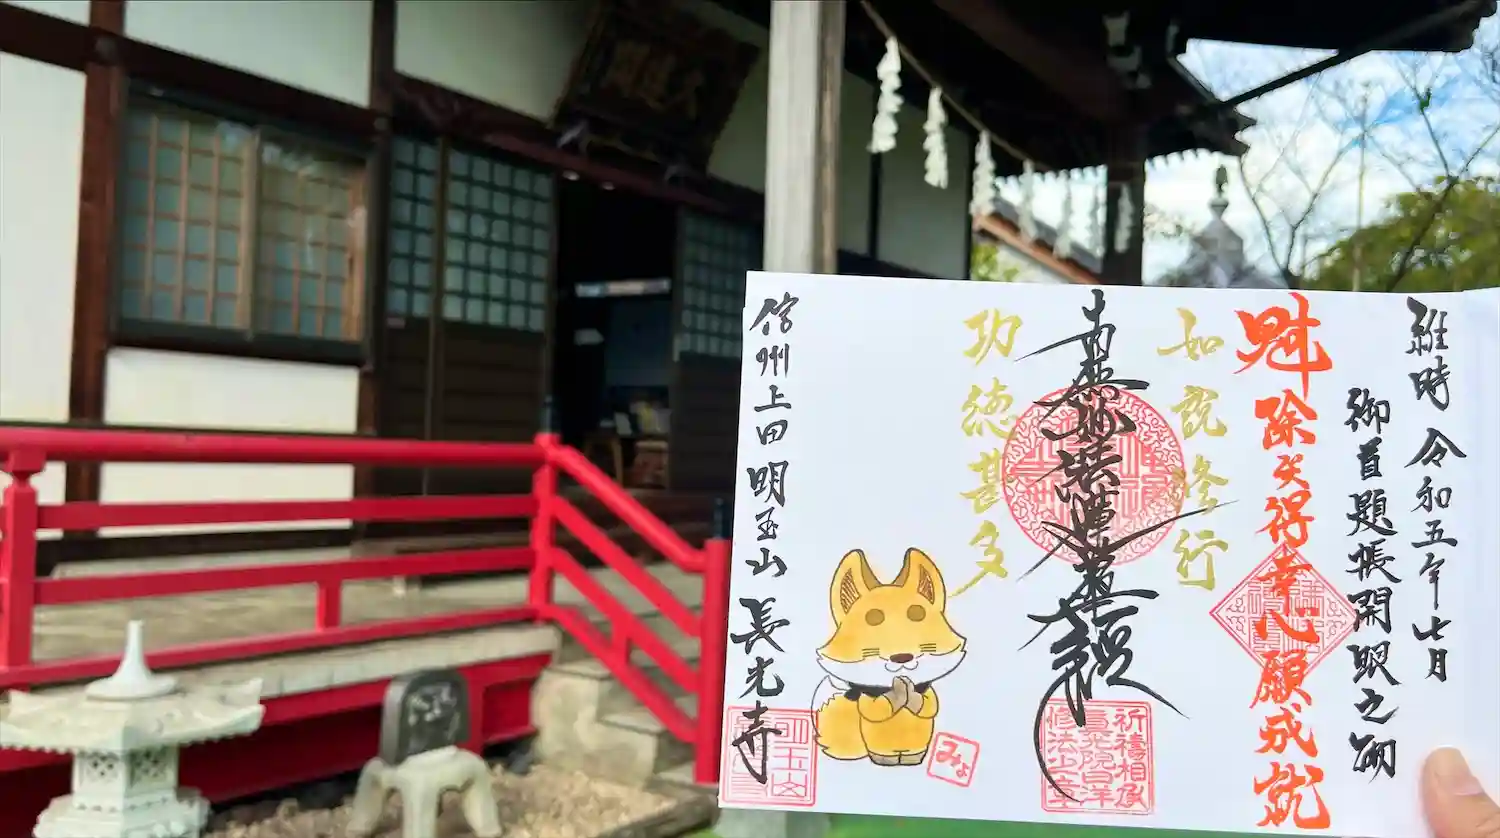 維時 令和五年七月
御首題帳開眼之砌
魁 除災得幸心願成就
如説修行
南無妙法蓮華経
功徳甚多
祈祷相承
修法
みょ
信州上田 明玉山 長光寺
明玉山